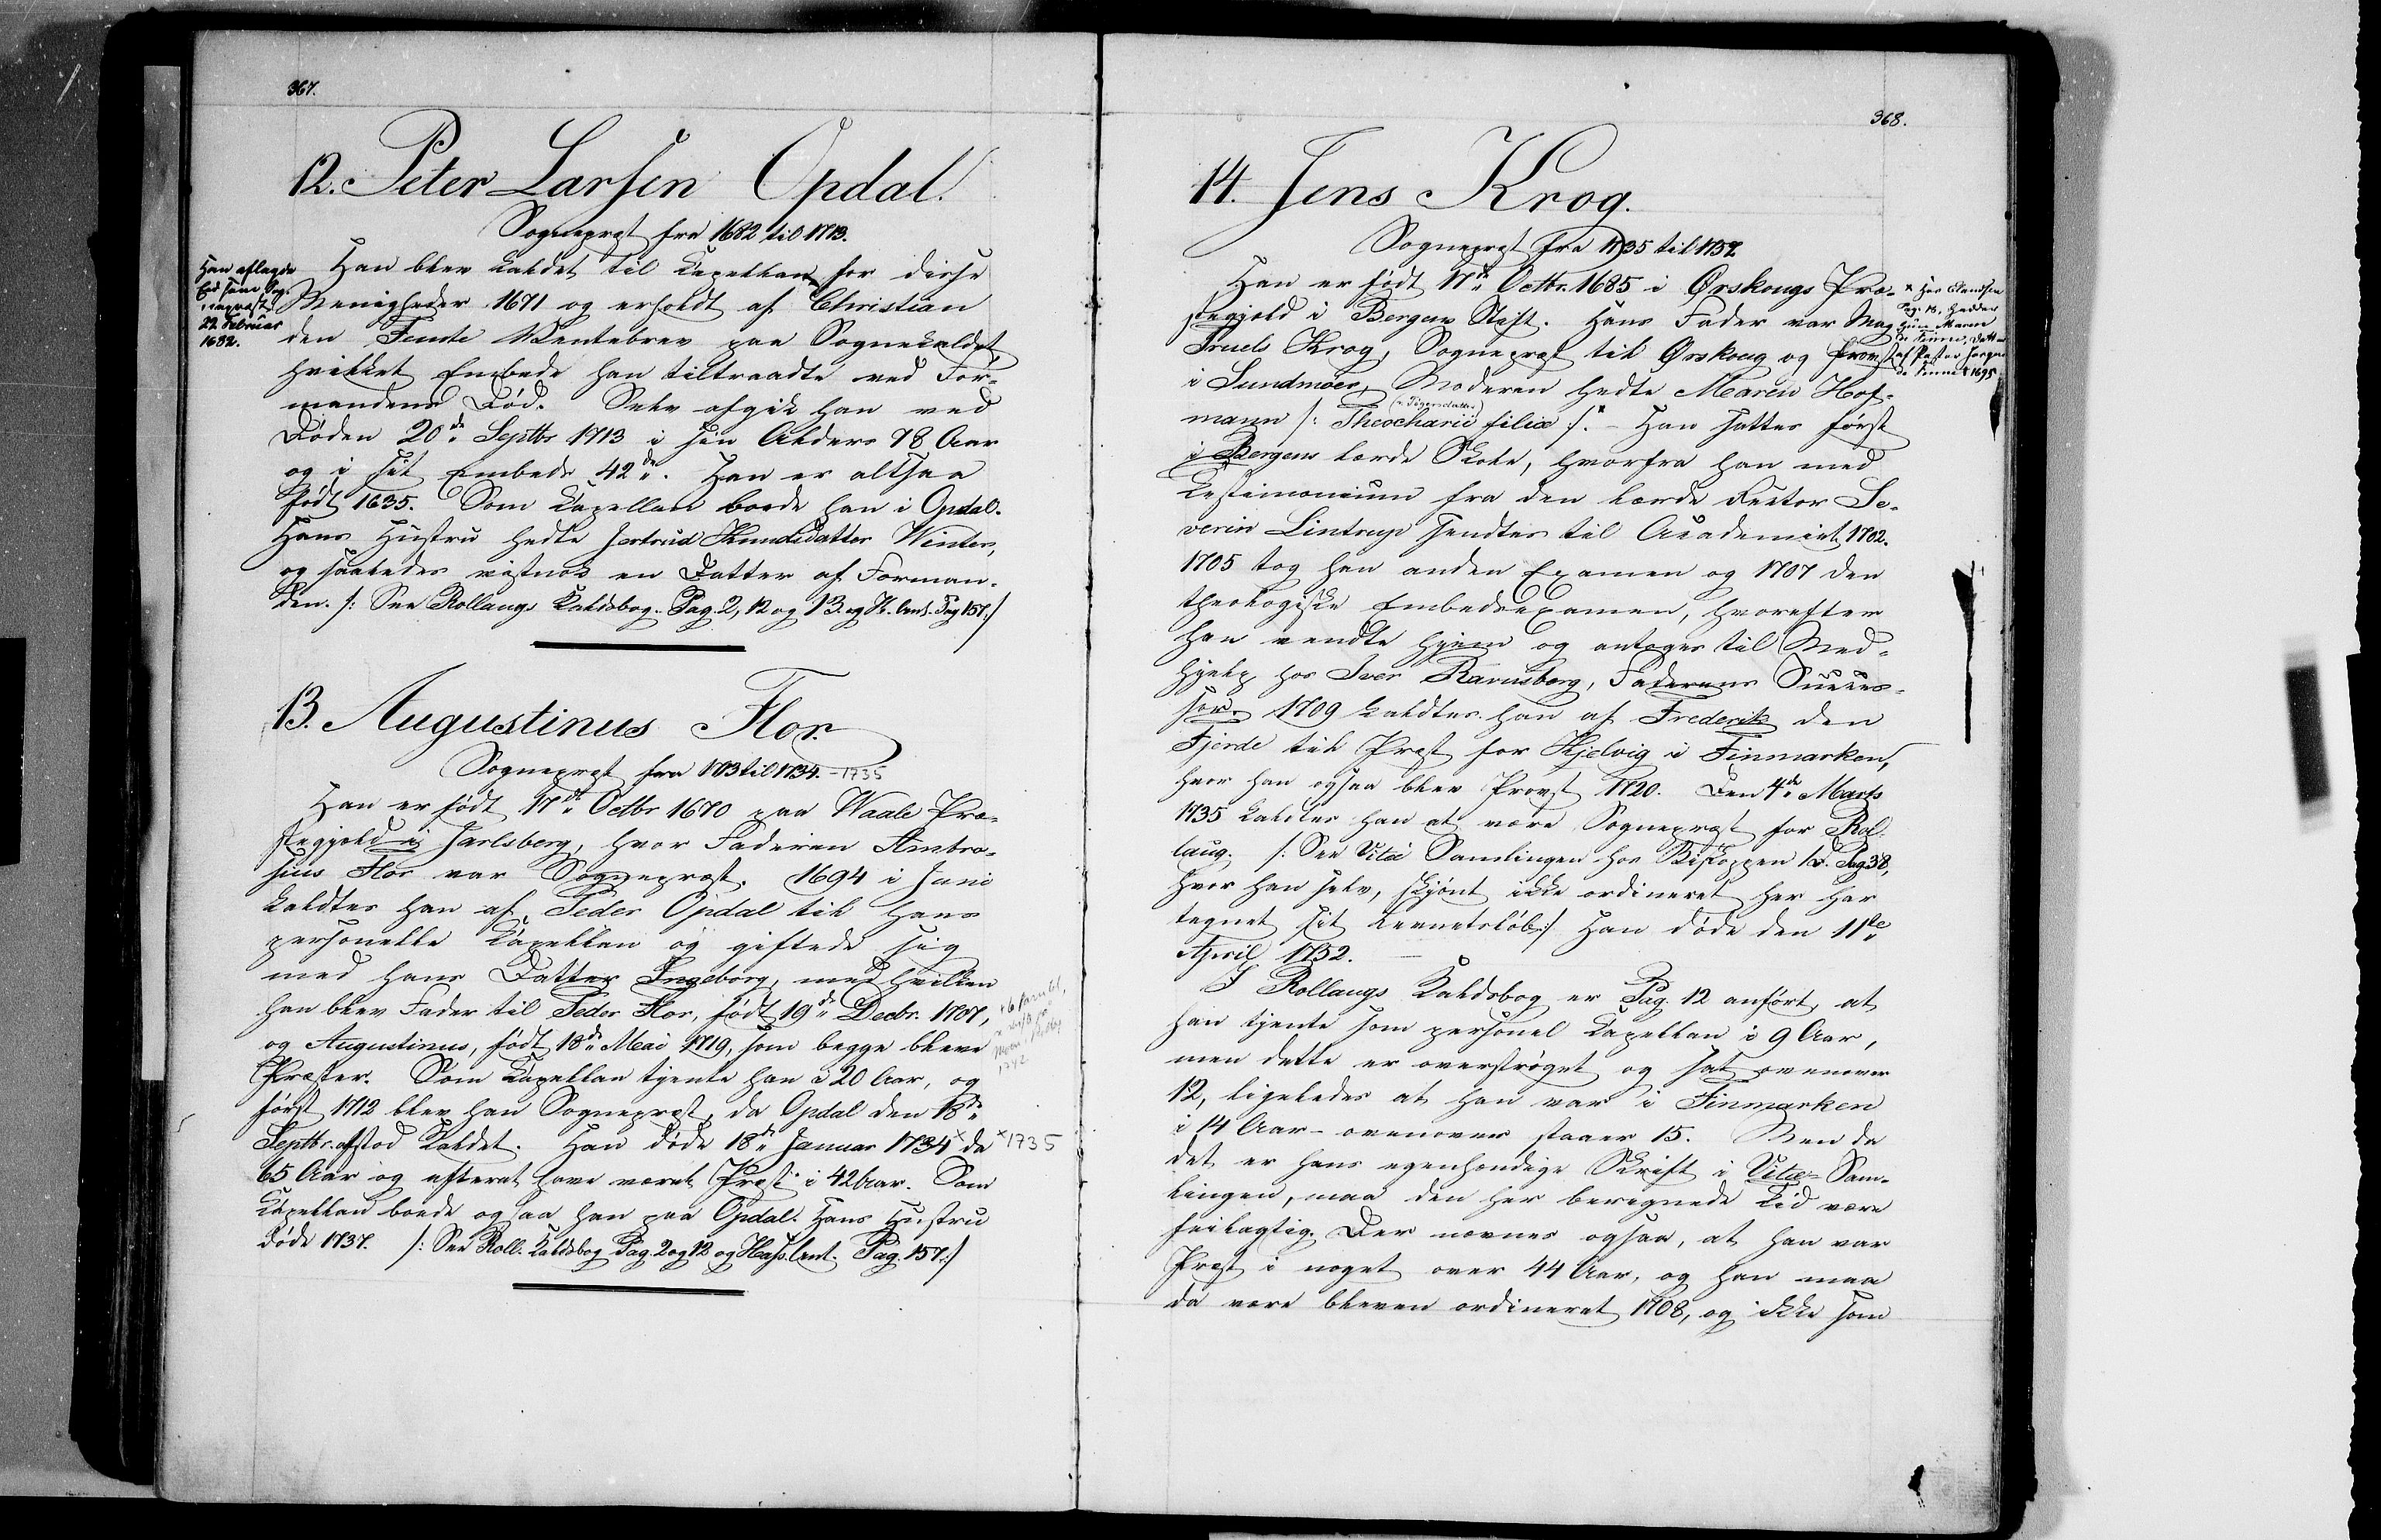 367.
12. Peter Larsen Opdal.
Sognepræst fra 1682 til 1713.
Han aflagde
Eed som Sog-
nepræst
22 Februar
1682.
Han blev kaldet til Capellan for disse
Menigheder 1671 og erholdt af Christian
den Femte Ventebrev paa Sognekaldet,
hvilket Embede han tiltraadte ved For-
mandens Død. Selv afgik han ved
Døden 20de Septbr 1713 i sin Alders 78 Aar
og i sit Embede 42de. Han er altsaa
født 1635. Som Capellan boede han i Opdal.
Hans Hustru hedte Jertrud Knudsdatter Winter,
og saaledes vistnok en Datter af Forman-
den. /: See Rollaugs Kaldsbog Pag. 2, 12 og 13 og H. Cent. Pag 157:/
13. Augustinus Flor.
Sognepræst fra 1713 til 1734. -1735
Han er født 17de Octbr 1670 paa Waale Præ-
stegjeld i Jarlsberg, hvor Faderen Ambro-
sius Flor var Sognepræst. 1694 i Juni
kaldtes han af Peder Opdal til hans
personelle Capellan og giftede sig
med hans Datter Ingeborg, med hvilken
han blev Fader til Peder Flor, født 19de Decbr. 1707,
og Augustinus, født 18de Mai 1719, som begge bleve
Præster. Som Capellan tjente han i 20 Aar, og
først 1712 blev han Sognepræst, da Opdal den 18de
Septbr. afstod Kaldet. Han døde 18de Januar 1734 x da
x 1735
65 Aar og efterat have været Præst i 42 Aar. Som
Capellan boede ogsaa han paa Opdal. Hans Hustru
døde 1737. /: See Roll. Kaldsbog Pag. 2 og 12 og Hans. Cent. Pag. 157:/
368.
14. Jens Krog.
Sognepræst fra 1735 til 1752.
Han er født 17de Octbr. 1685 i Ørskougs Præ-
stegjeld i Bergens Stift. Hans Fader var Mag
Truels Krog, Sognepræst til Ørskoug og Provst
i Sundmøer, Moderen hedte Maren Hof-
mann /: Theocharii filia :/.* Han sattes først
i Bergens lærde Skole, hvorfra han med
Testimonium fra den lærde Rector Se-
verin Lintrup sendtes til Academiet 1702.
1705 tog han anden Examen og 1707 den
theologiske Embedsexamen, hvorefter
han vendte hjem og antoges til Med-
hjelp hos Iver Ravnsberg, Faderens Succes-
sor. 1709 kaldtes han af Frederik den
Fjerde til Præst for Kjelvig i Finmarken,
hvor han ogsaa blev Provst 1720. Den 4de Marts
1735 kaldtes han at være Sognepræst for Rol-
laug. /: See Vita Samlingen hos Biskoppen Pag 38,
hvor han selv, skjønt ikke ordineret her har
tegnet sit Levnetsløb:/ Han døde den 11te
April 1752.
I Rollaugs Kaldsbog er Pag. 12 anført, at
han tjente som personel Capellan i 9 Aar,
men dette er overstrøget og sat ovenover
12, ligeledes at han var i Finmarken
i 14 Aar - ovenover staaer 15. Men da
det er hans egenhændige Skrift i Vitæ-Sam-
lingen, maa den her beregnede Tid være
feilagtig. Der nævnes ogsaa, at han var
Præst i noget over 44 Aar, og han maa
da være bleven ordineret 1708, og ikke som